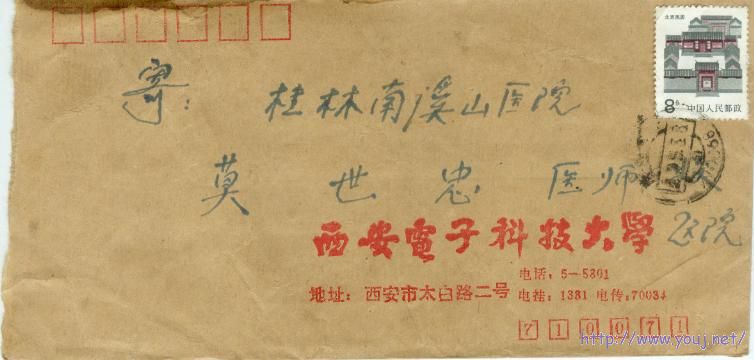 北京民居
8分 中国人民邮政
寄: 桂林南溪山医院
莫世忠 医师
西安電子科技大學 医院
电话: 5—5301
地址: 西安市太白路二号 电挂: 1381 电传:70034
710071
http://www.youj.net/